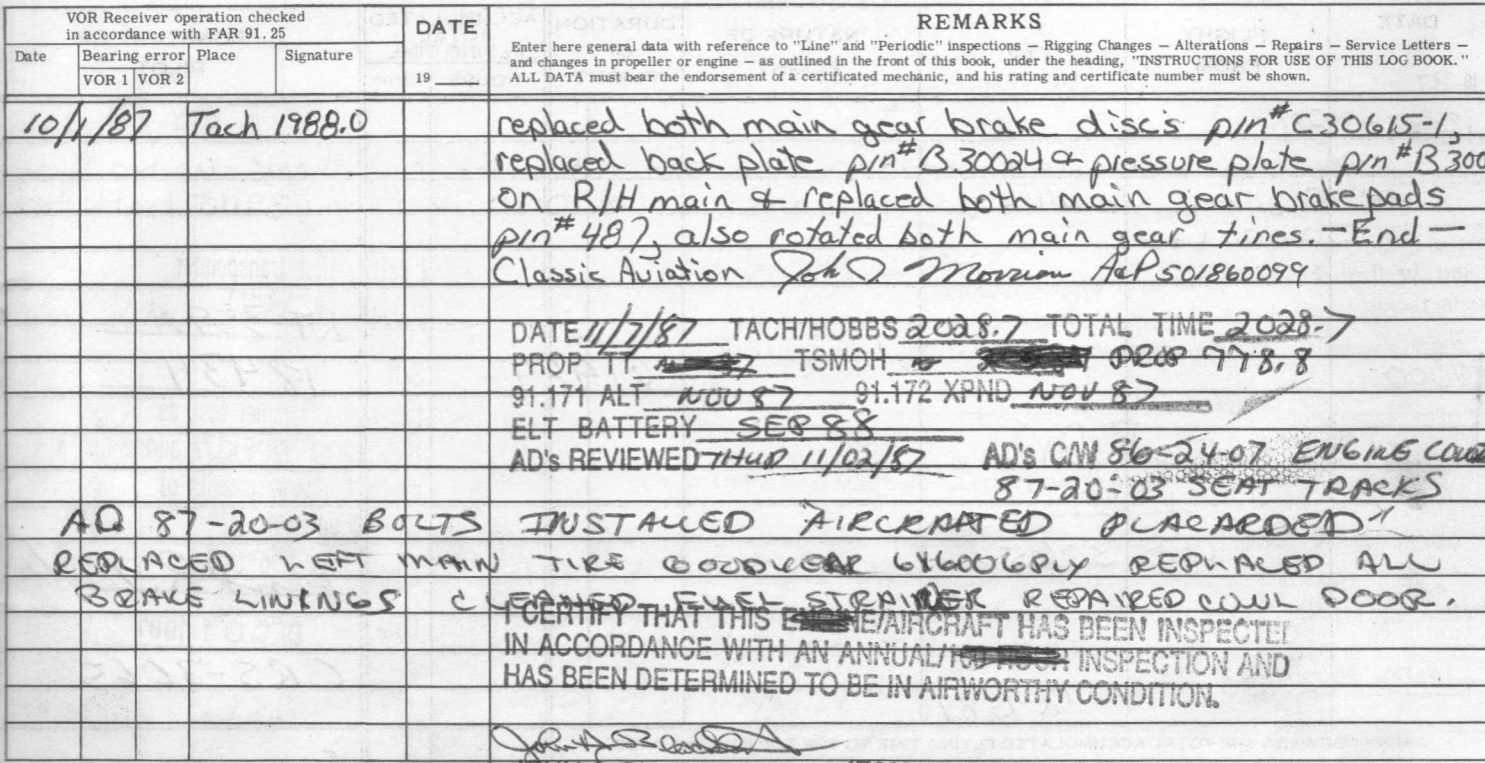 VOR Receiver operation checked
in accordance with FAR 91.25
Date Bearing error Place Signature
VOR 1 VOR 2
DATE
19
REMARKS
Enter here general data with reference to "Line" and "Periodic" inspections — Rigging Changes — Alterations — Repairs — Service Letters —
and changes in propeller or engine — as outlined in the front of this book, under the heading, "INSTRUCTIONS FOR USE OF THIS LOG BOOK."
ALL DATA must bear the endorsement of a certificated mechanic, and his rating and certificate number must be shown.
10/1/87 Tach 1988.0 replaced both main gear brake discs p/n# C30615-1,
replaced back plate p/n# B30024 & pressure plate p/n# B300
on R/H main & replaced both main gear brake pads
p/n# 487, also rotated both main gear tires. — End —
Classic Aviation A&P 501860099
DATE 11/7/87 TACH/HOBBS 2028.7 TOTAL TIME 2028.7
PROP TT TSMOH PROP 778.8
91.171 ALT NOV 87 91.172 XPND NOV 87
ELT BATTERY SEP 88
AD's REVIEWED THUR 11/02/87 AD's C/W 86-24-07 ENGINE
87-20-03 SEAT TRACKS
AD 87-20-03 BOLTS INSTALLED AIRCRAFTED PLACARDED
REPLACED LEFT MAIN TIRE GOODYEAR 6X6006PLY REPLACED ALL
BRAKE LININGS CLEANED FUEL STRAINER REPAIRED COWL DOOR.
I CERTIFY THAT THIS ENGINE/AIRCRAFT HAS BEEN INSPECTED
IN ACCORDANCE WITH AN ANNUAL/100 HOUR INSPECTION AND
HAS BEEN DETERMINED TO BE IN AIRWORTHY CONDITION.